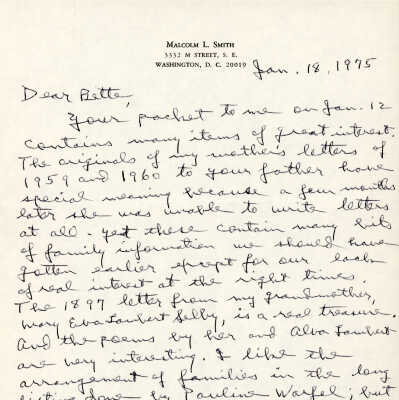 MALCOLM L. SMITH
3332 M STREET, S. E.
WASHINGTON, D. C. 20019
Jan. 18, 1975
Dear Bette,
Your packet to me on Jan. 12
contains many items of great interest.
The originals of my mother's letters of
1959 and 1960 to your father have
special meaning because a few months
later she was unable to write letters
at all. Yet these contain many bits
of family information we should have
gotten earlier except for our lack
of real interest at the right times.
The 1897 letter from my grandmother,
Mary Eva Lambert Selby, is a real treasure.
And the poems by her and Alva Lambert
are very interesting. I like the
arrangement of families in the long
listing done by Pauline Warfel; but